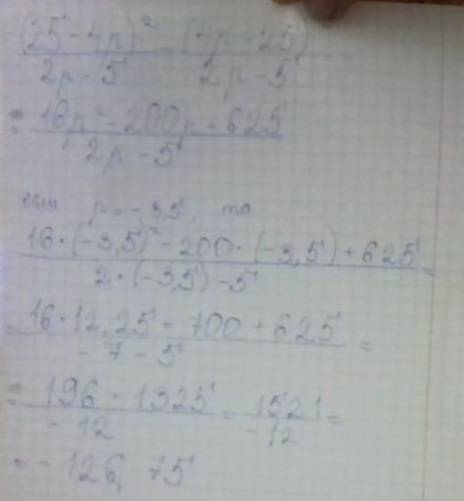 (25-4p)² = (4p-25)
2p-5 2p-5
= 16p²-200p+625
2p-5
если p=-3,5, то
16·(-3,5)²-200·(-3,5)+625 =
2·(-3,5)-5
16·12,25+700+625 =
-7-5
= 196+1325 = 1521 =
-12 -12
= -126,75